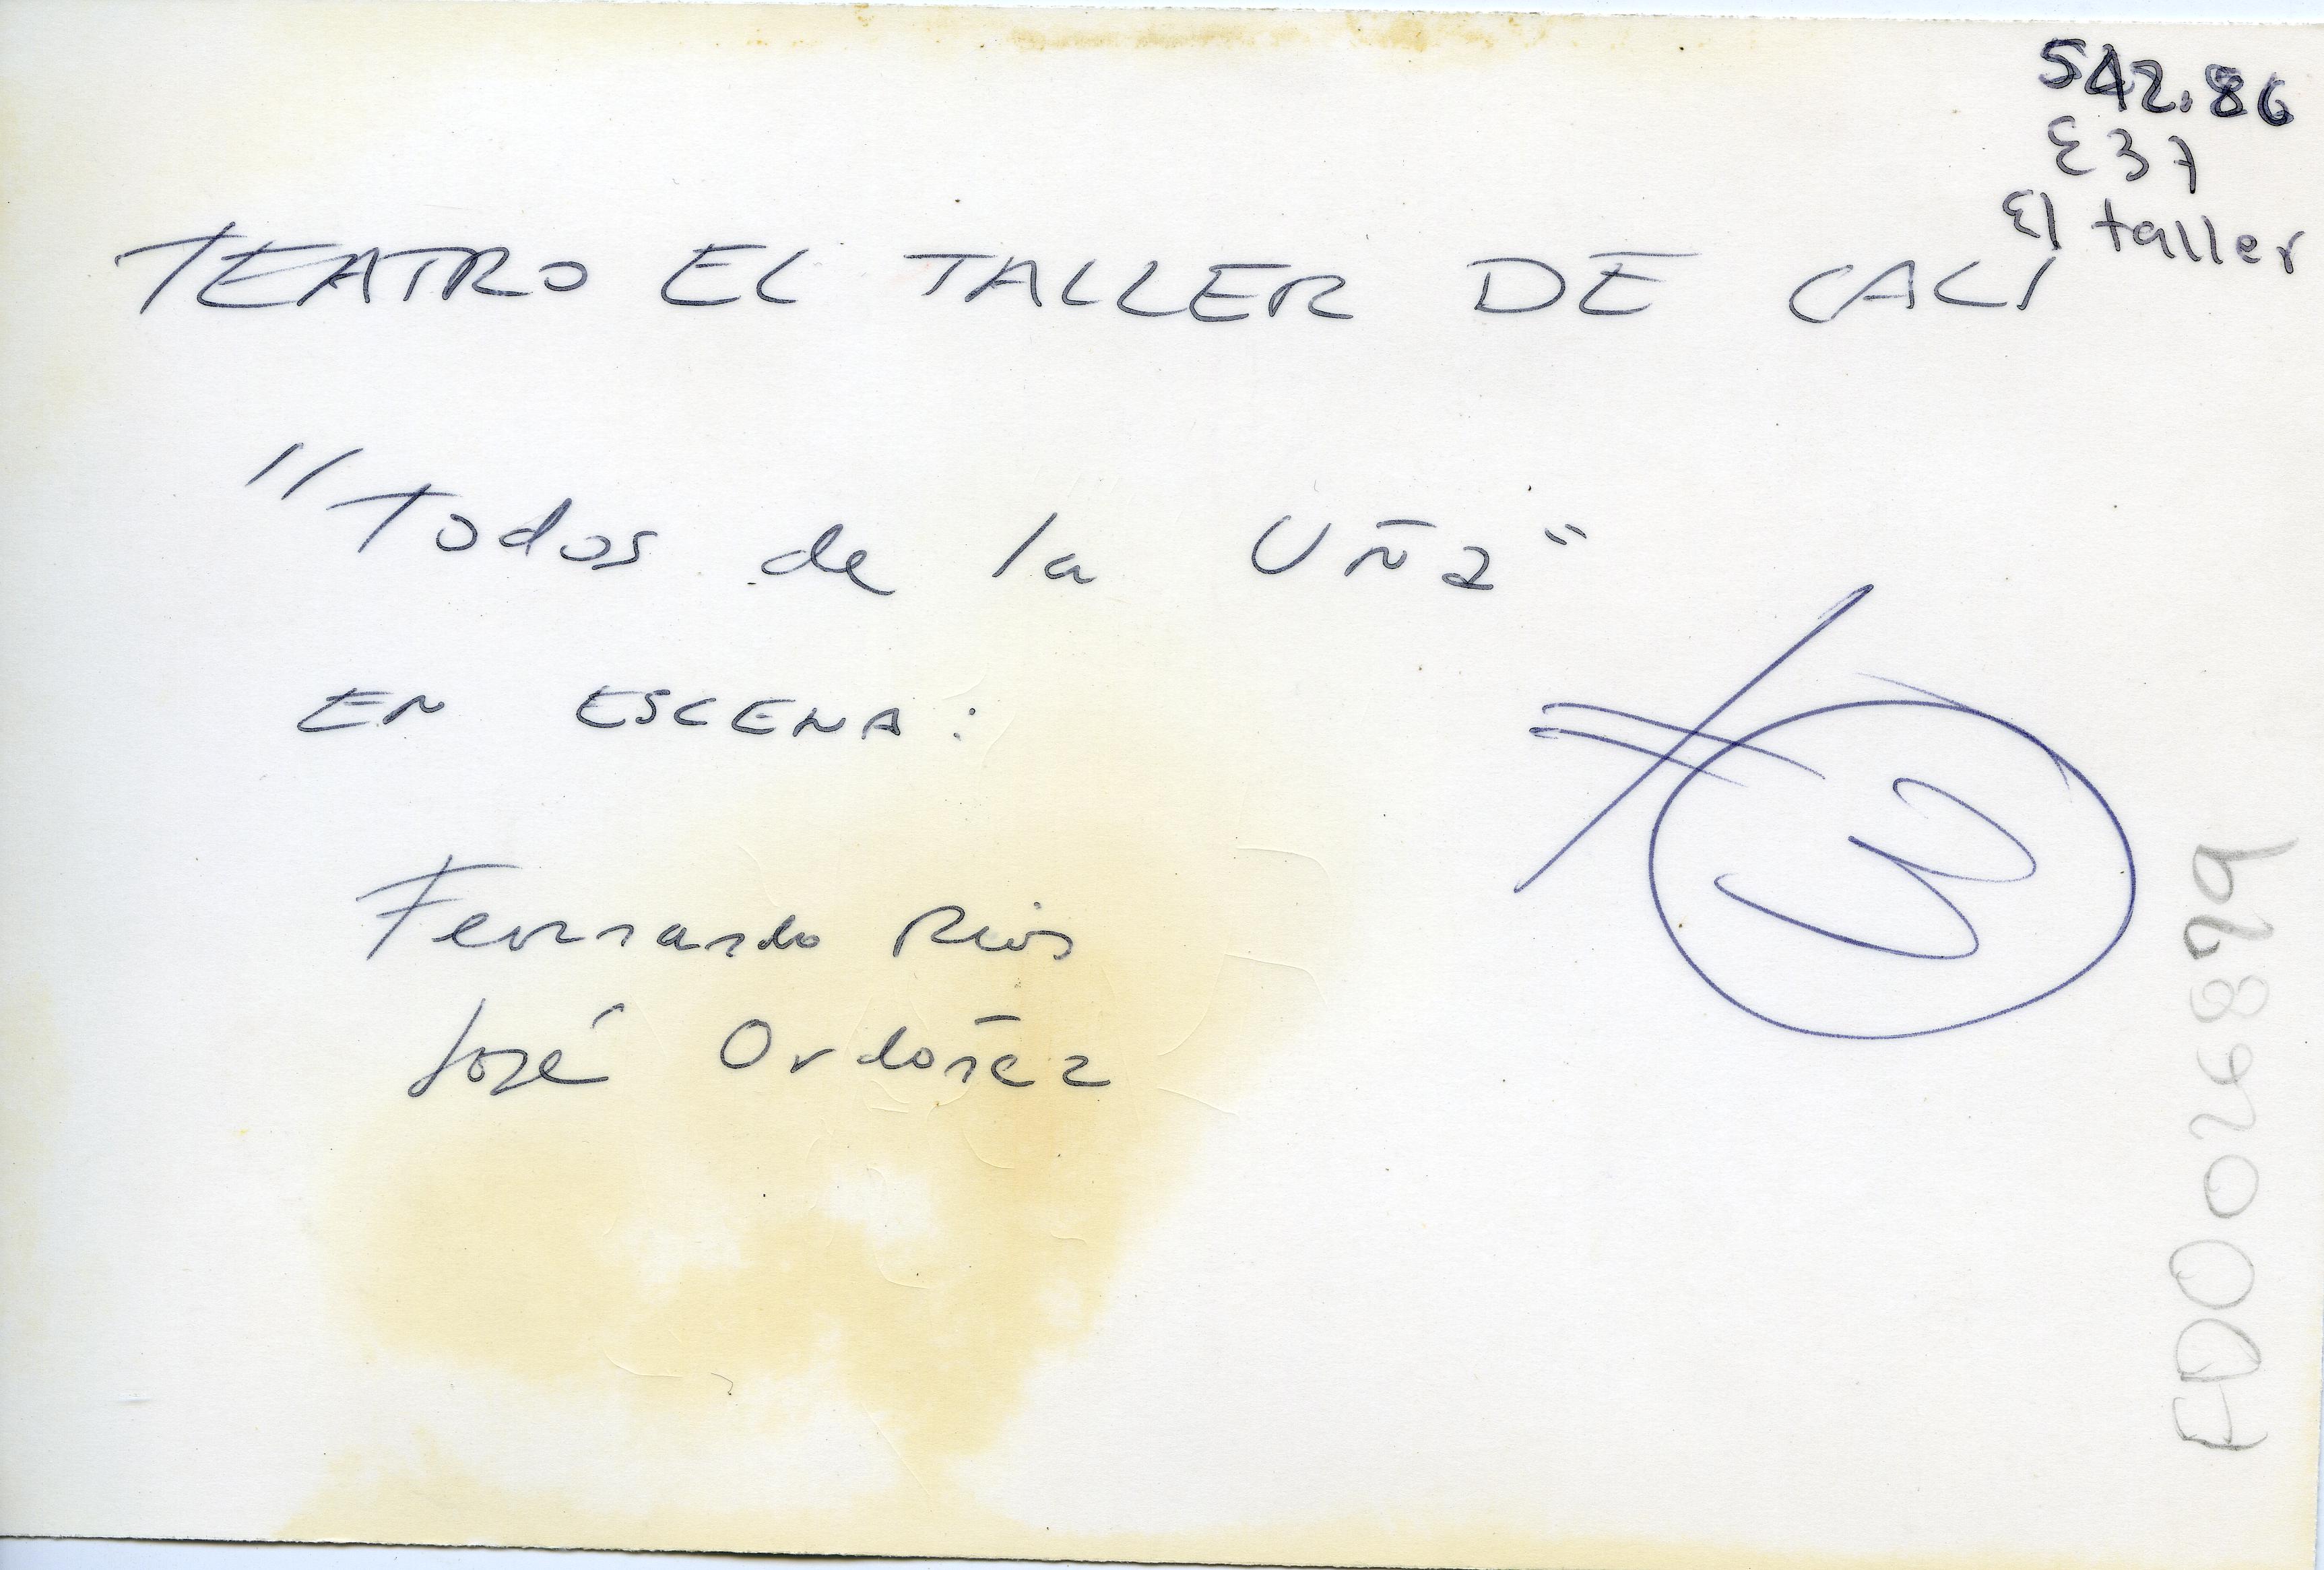 542.86
E37
El taller
TEATRO EL TALLER DE CALI
"Todos de la Uña"
EN ESCENA:
Fernando Rios
José Ordoñez
FD0026899